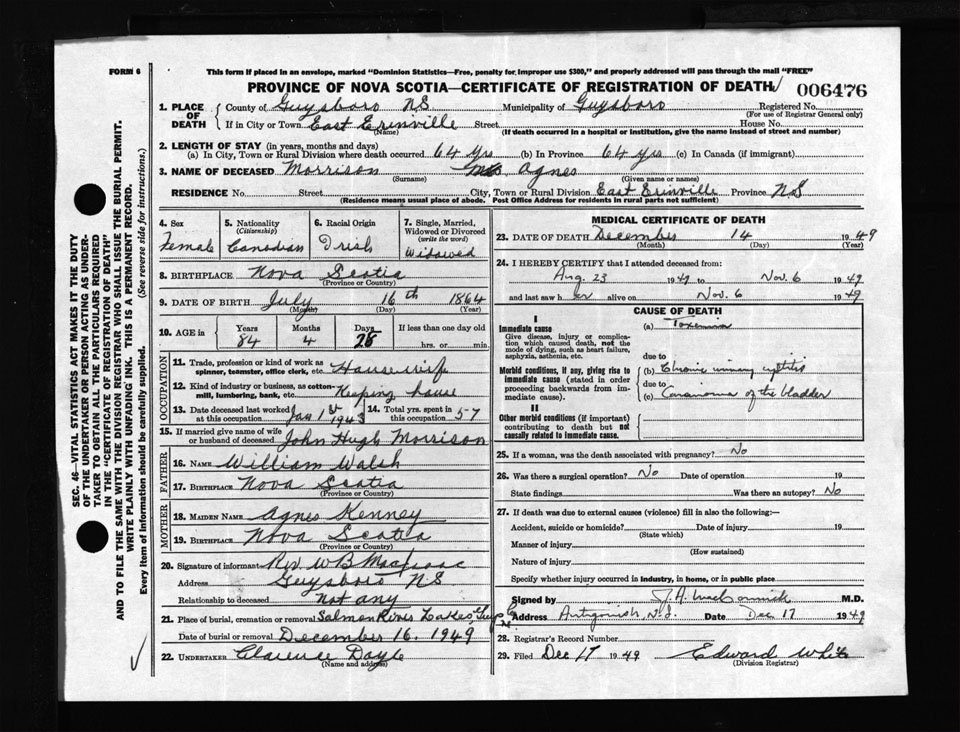 FORM 6
This form if placed in an envelope, marked "Dominion Statistics—Free, penalty for improper use $300," and properly addressed will pass through the mail "FREE"
PROVINCE OF NOVA SCOTIA—CERTIFICATE OF REGISTRATION OF DEATH 006476
1. PLACE OF DEATH County of Guysboro NS Municipality of Guysboro Registered No.
(For use of Registrar General only)
If in City or Town East Erinville Street House No.
(Name) (If death occurred in a hospital or institution, give the name instead of street and number)
2. LENGTH OF STAY (in years, months and days)
(a) In City, Town or Rural Division where death occurred 64 yrs (b) In Province 64 yrs (c) In Canada (if immigrant)
3. NAME OF DECEASED Morrison Mrs Agnes
(Surname) (Given name or names)
RESIDENCE No. Street City, Town or Rural Division East Erinville Province NS
(Residence means usual place of abode. Post Office Address for residents in rural parts not sufficient)
4. Sex
Female
5. Nationality
(Citizenship)
Canadian
6. Racial Origin
Irish
7. Single, Married, Widowed or Divorced
(write the word)
Widowed
8. BIRTHPLACE Nova Scotia
(Province or Country)
9. DATE OF BIRTH July 16th 1864
(Month) (Day) (Year)
10. AGE in Years Months Days If less than one day old
84 4 28 hrs. or min.
OCCUPATION
11. Trade, profession or kind of work as
spinner, teamster, office clerk, etc. Housewife
12. Kind of industry or business, as cotton-
mill, lumbering, bank, etc. Keeping house
13. Date deceased last worked at this occupation Jan 1st 1943 14. Total yrs. spent in this occupation 57
15. If married give name of wife
or husband of deceased John Hugh Morrison
FATHER
16. NAME William Walsh
17. BIRTHPLACE Nova Scotia
(Province or Country)
MOTHER
18. MAIDEN NAME Agnes Kenney
19. BIRTHPLACE Nova Scotia
(Province or Country)
20. Signature of informant Rev. W B MacIsaac
Address Guysboro NS
Relationship to deceased not any
21. Place of burial, cremation or removal Salmon River Lakes
Date of burial or removal December 16, 1949
22. UNDERTAKER Clarence Doyle
(Name and address)
MEDICAL CERTIFICATE OF DEATH
23. DATE OF DEATH December 14 1949
(Month) (Day) (Year)
24. I HEREBY CERTIFY that I attended deceased from:
Aug. 23 1949 to Nov. 6 1949
and last saw her alive on Nov. 6 1949
CAUSE OF DEATH
I
Immediate cause (a) Toxemia
Give disease, injury or complica-
tion which caused death, not the
mode of dying, such as heart failure,
asphyxia, asthenia, etc.
due to
Morbid conditions, if any, giving rise to (b) Chronic urinary cystitis
immediate cause (stated in order
proceeding backwards from im-
mediate cause).
due to
(c) Carcinoma of the bladder
II
Other morbid conditions (if important)
contributing to death but not
causally related to immediate cause.
25. If a woman, was the death associated with pregnancy? No
26. Was there a surgical operation? No Date of operation 19
State findings Was there an autopsy? No
27. If death was due to external causes (violence) fill in also the following:—
Accident, suicide or homicide? Date of injury 19
(State which)
Manner of injury
(How sustained)
Nature of injury
Specify whether injury occurred in industry, in home, or in public place
Signed by J. A. MacCormick M.D.
Address Antigonish, N.S. Date Dec 17 1949
28. Registrar's Record Number
29. Filed Dec 17 1949 Edward White
(Division Registrar)
SEC. 46—VITAL STATISTICS ACT MAKES IT THE DUTY
OF THE UNDERTAKER OR PERSON ACTING AS UNDER-
TAKER TO OBTAIN ALL THE PARTICULARS REQUIRED
IN THE "CERTIFICATE OF REGISTRATION OF DEATH"
AND TO FILE THE SAME WITH THE DIVISION REGISTRAR WHO SHALL ISSUE THE BURIAL PERMIT.
WRITE PLAINLY WITH UNFADING INK. THIS IS A PERMANENT RECORD.
Every item of information should be carefully supplied. (See reverse side for instructions.)